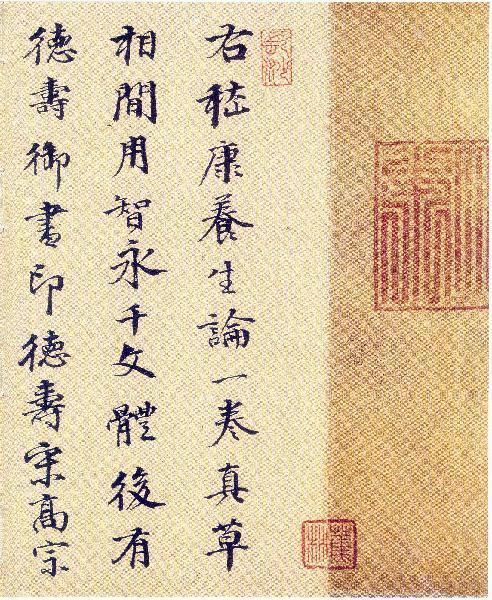 右嵇康養生論一卷真草
相間用智永千文體後有
德壽御書印德壽宋高宗